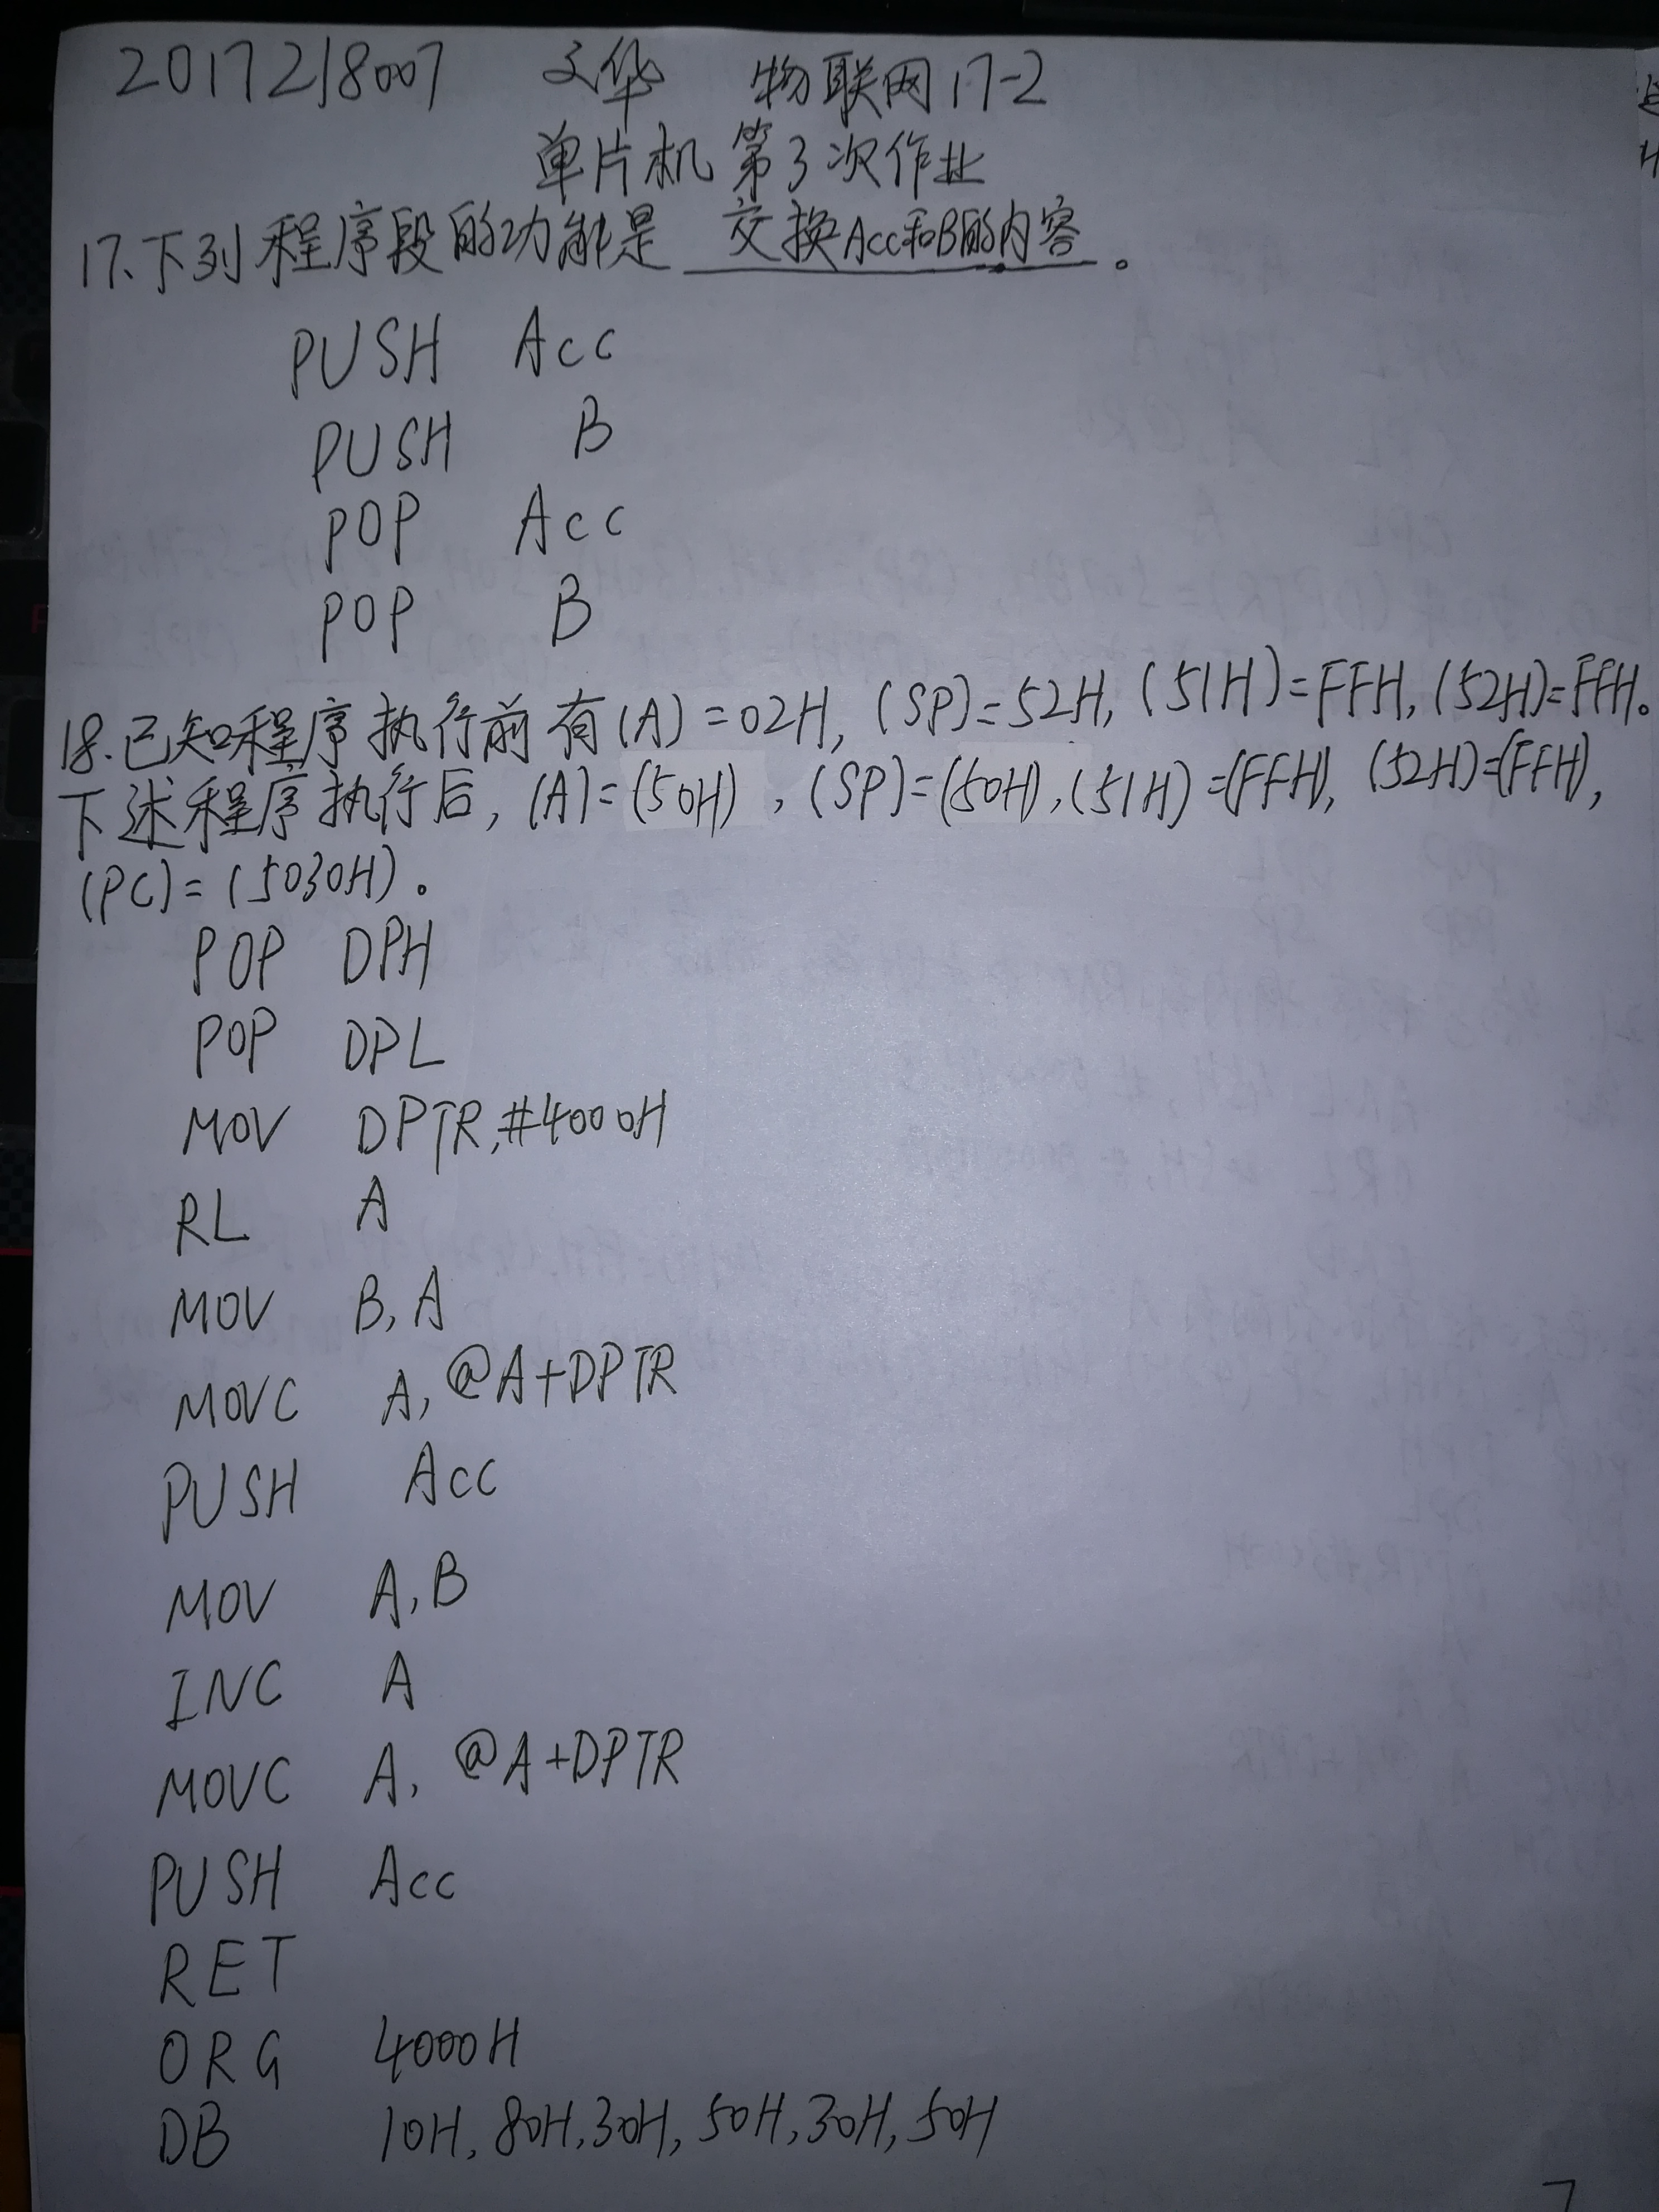 2017218007 文华 物联网17-2
单片机第3次作业
17.下列程序段的功能是 交换Acc和B的内容。
PUSH Acc
PUSH B
POP Acc
POP B
18.已知程序执行前有(A)=02H,(SP)=52H,(51H)=FFH,(52H)=FFH。
下述程序执行后,(A)=(50H),(SP)=(50H),(51H)=(FFH),(52H)=(FFH),
(PC)=(5030H)。
POP DPH
POP DPL
MOV DPTR,#4000H
RL A
MOV B,A
MOVC A,@A+DPTR
PUSH Acc
MOV A,B
INC A
MOVC A,@A+DPTR
PUSH Acc
RET
ORG 4000H
DB 10H,80H,30H,50H,30H,50H